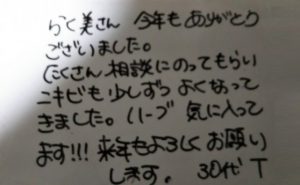 らく美さん 今年もありがとう
ございました。
たくさん相談にのってもらい
ニキビも少しずつよくなって
きました。ハーブ 気に入って
ます!!! 来年もよろしくお願い
します。 30代 T